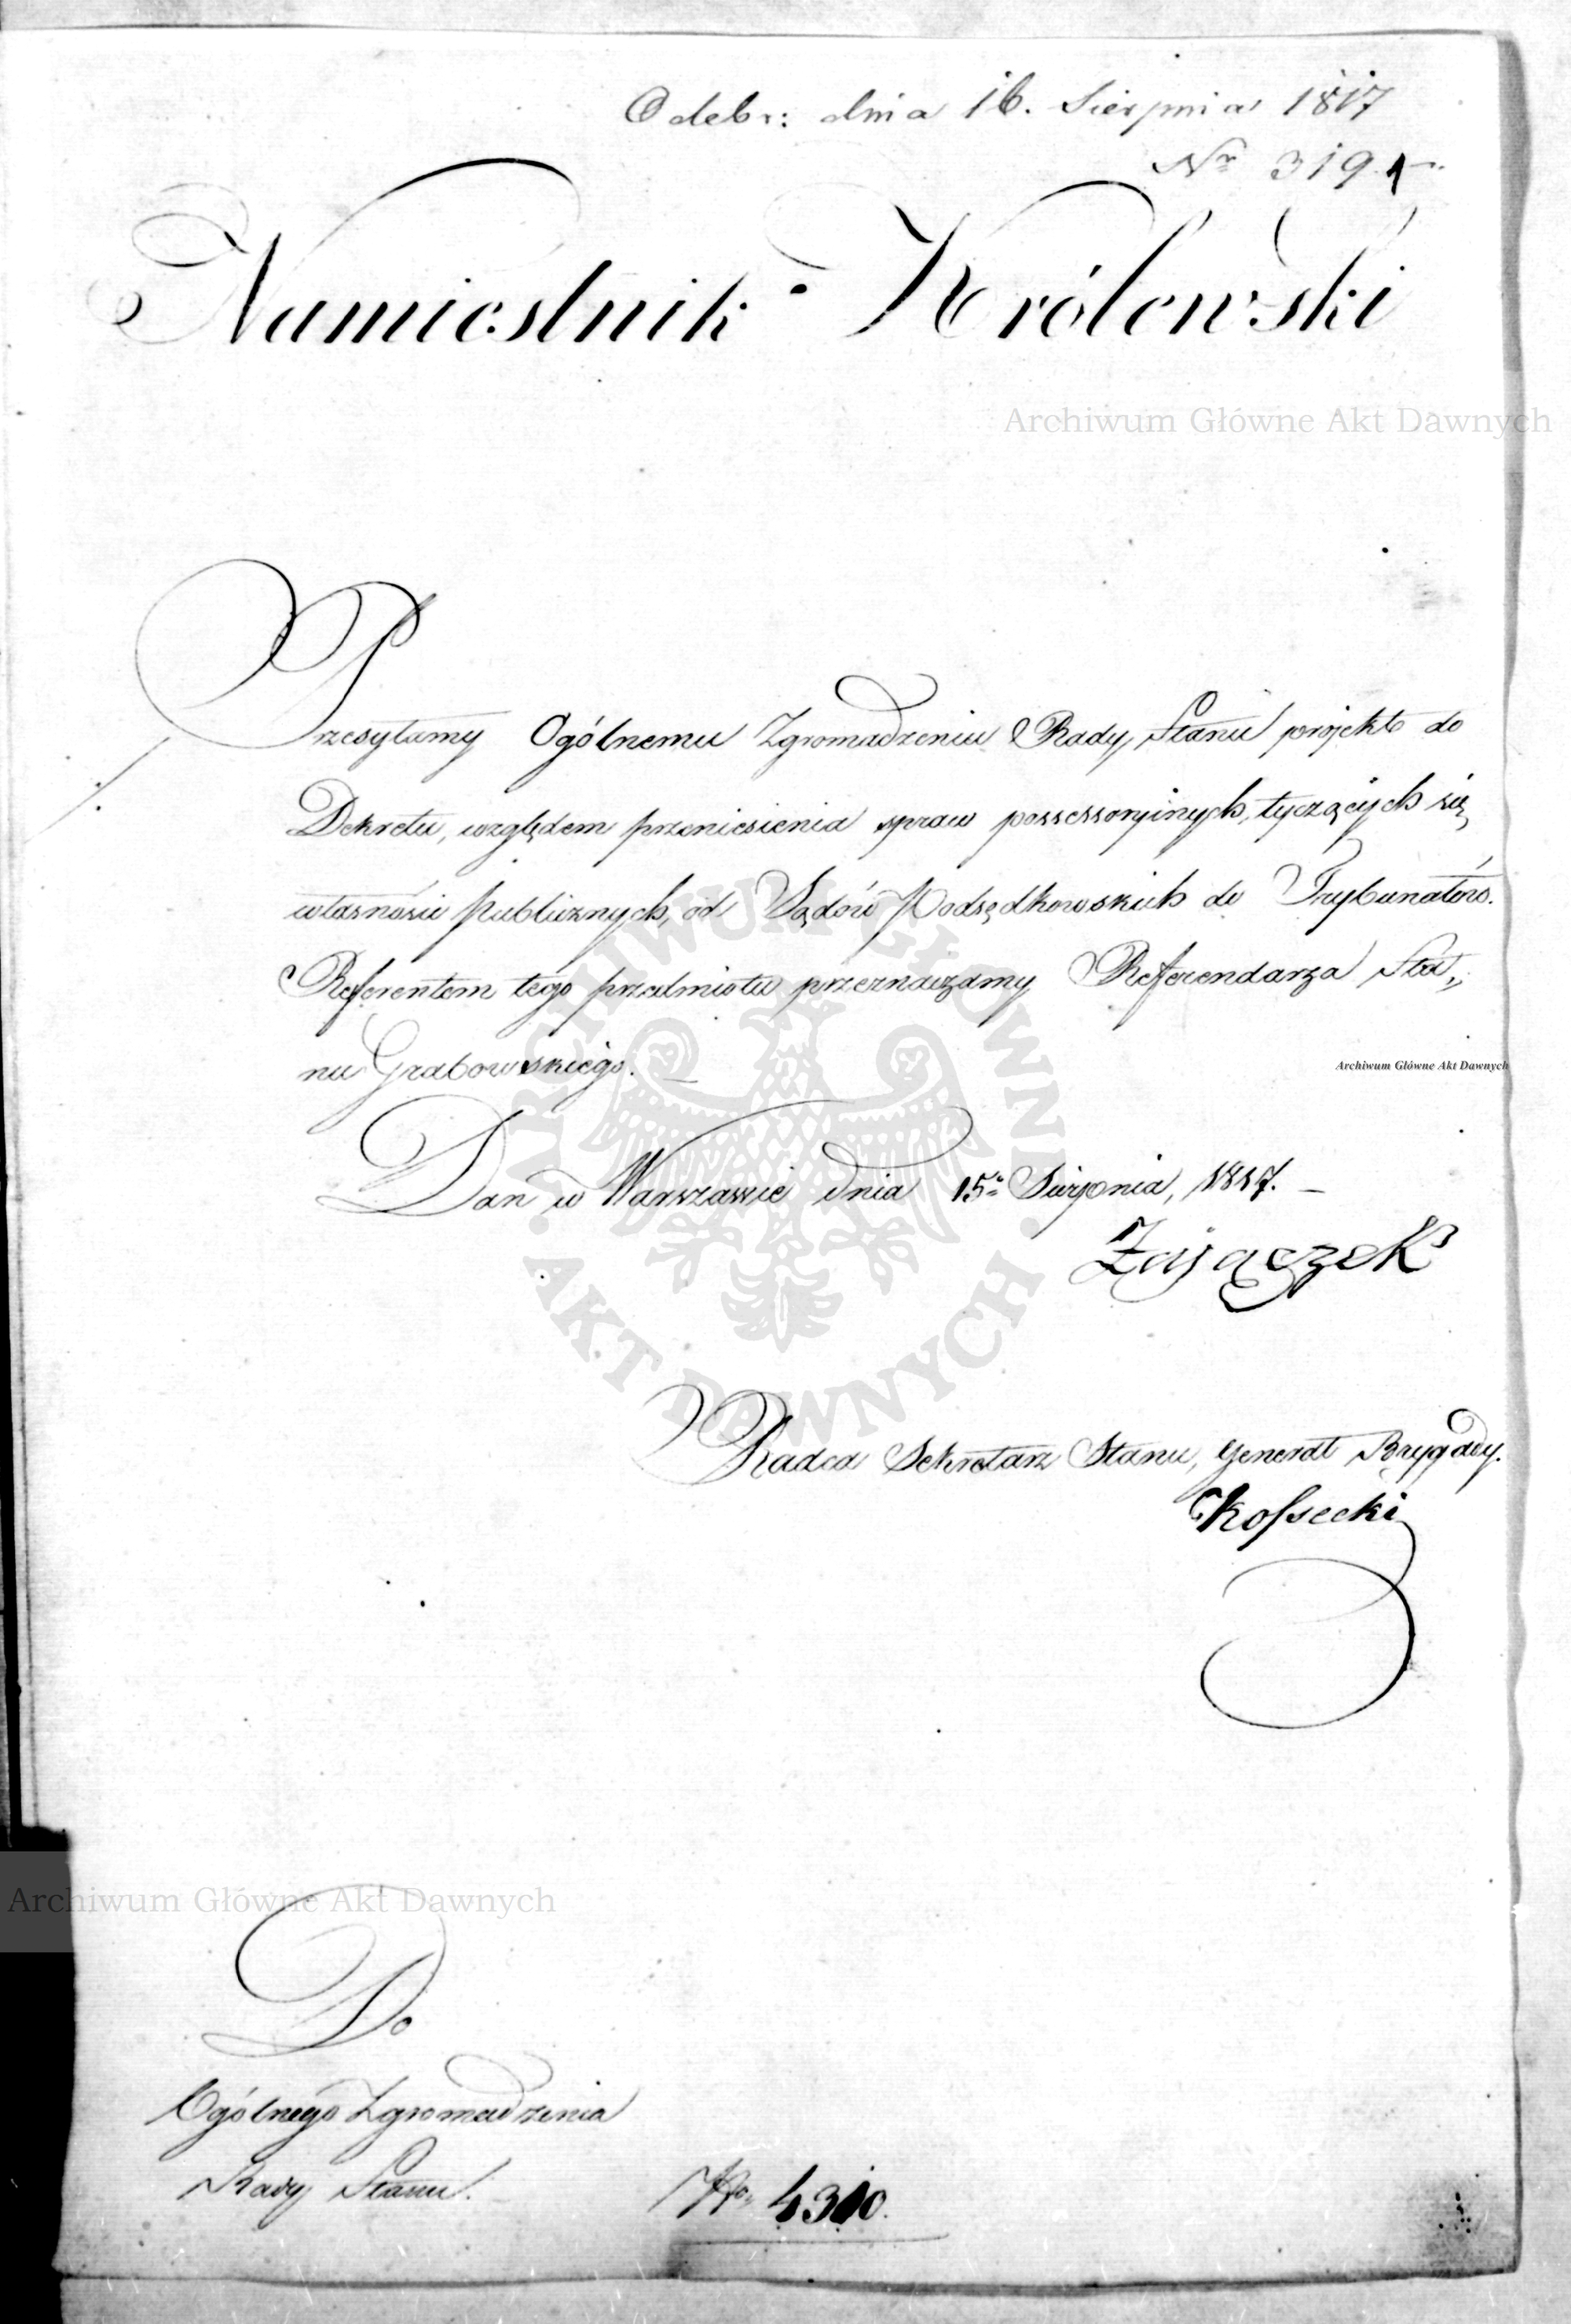 Odebr: dnia 16. Sierpnia 1817
Nr 319
Namiestnik Królewski
Archiwum Główne Akt Dawnych
Przesyłamy Ogólnemu Zgromadzeniu Rady Stanu projekt do
Dekretu, względem przeniesienia spraw possessoryinych, tyczących się
własności publicznych, od Sądów Podsędkowskich do Trybunałów.
Referentem tego przedmiotu przeznaczamy Referendarza Sta„
nu Grabowskiego. —
Archiwum Główne Akt Dawnych
Dan w Warszawie dnia 15. Sierpnia, 1817. —
Zajączek
Radca Sekretarz Stanu, Generał Brygady.
Kossecki
ARCHIWUM GŁÓWNE · AKT DAWNYCH ·
Archiwum Główne Akt Dawnych
Do
Ogólnego Zgromadzenia
Rady Stanu.
No 4310.